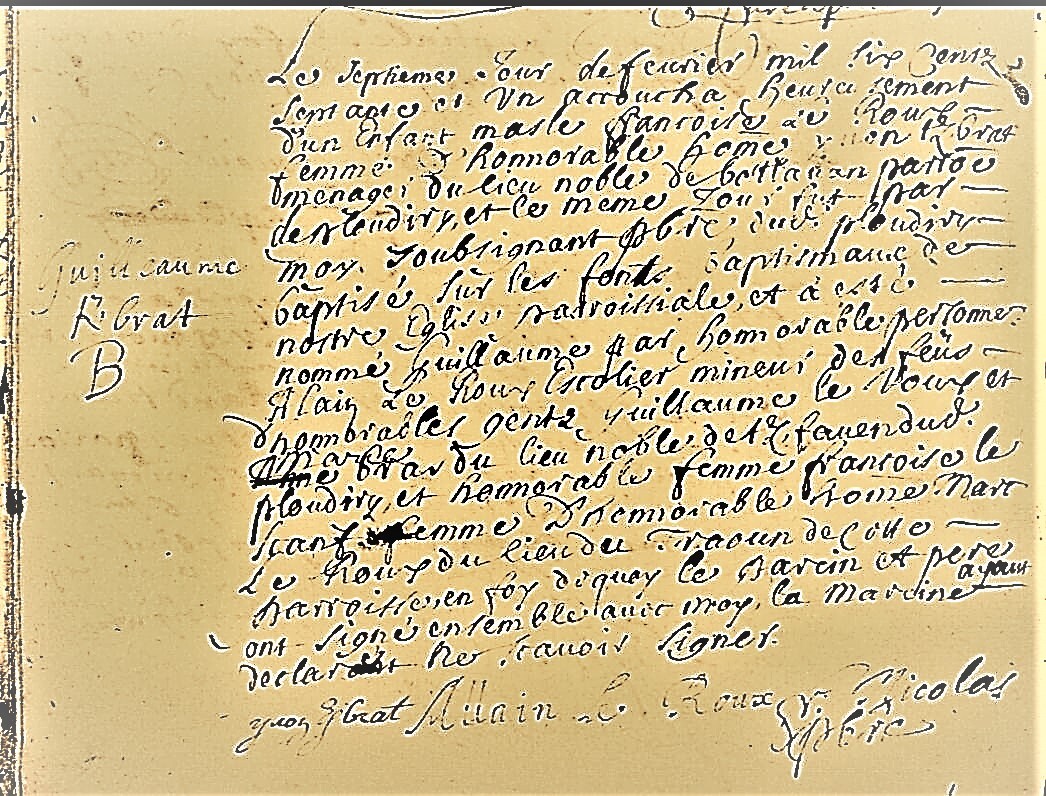 Le Septieme Jour de feurier mil six Centz
septante et Vn accoucha heureusement
d'un Enfant masle francoise Le Roux
femme d'honnorable home yuon K/brat
menager du lieu noble de parroe
de ploudiry, et le meme Jour fut par
moy soubsignant pbre dud. ploudiry
baptisé sur les fonts baptismaux de
nostre Eglise parroissiale, et a esté
nommé Guillaume par honnorable personne
Alain Le Roux Escolier mineur de feüs
honnorables gentz Guillaume le Roux et
Marie bras du lieu noble de dud.
ploudiry, et honnorable femme francoise le
scanf femme D'honnorable home Marc
Le Roux du lieu du Traoun de cette
parroisse, en foy dequoy le parein et pere
ont signé ensemble auec moy, la Mareine ayant
declaré ne scauoir signer.
yuon K/brat Allain Le Roux y. Nicolas
pbre
Guillaume
K/brat
B